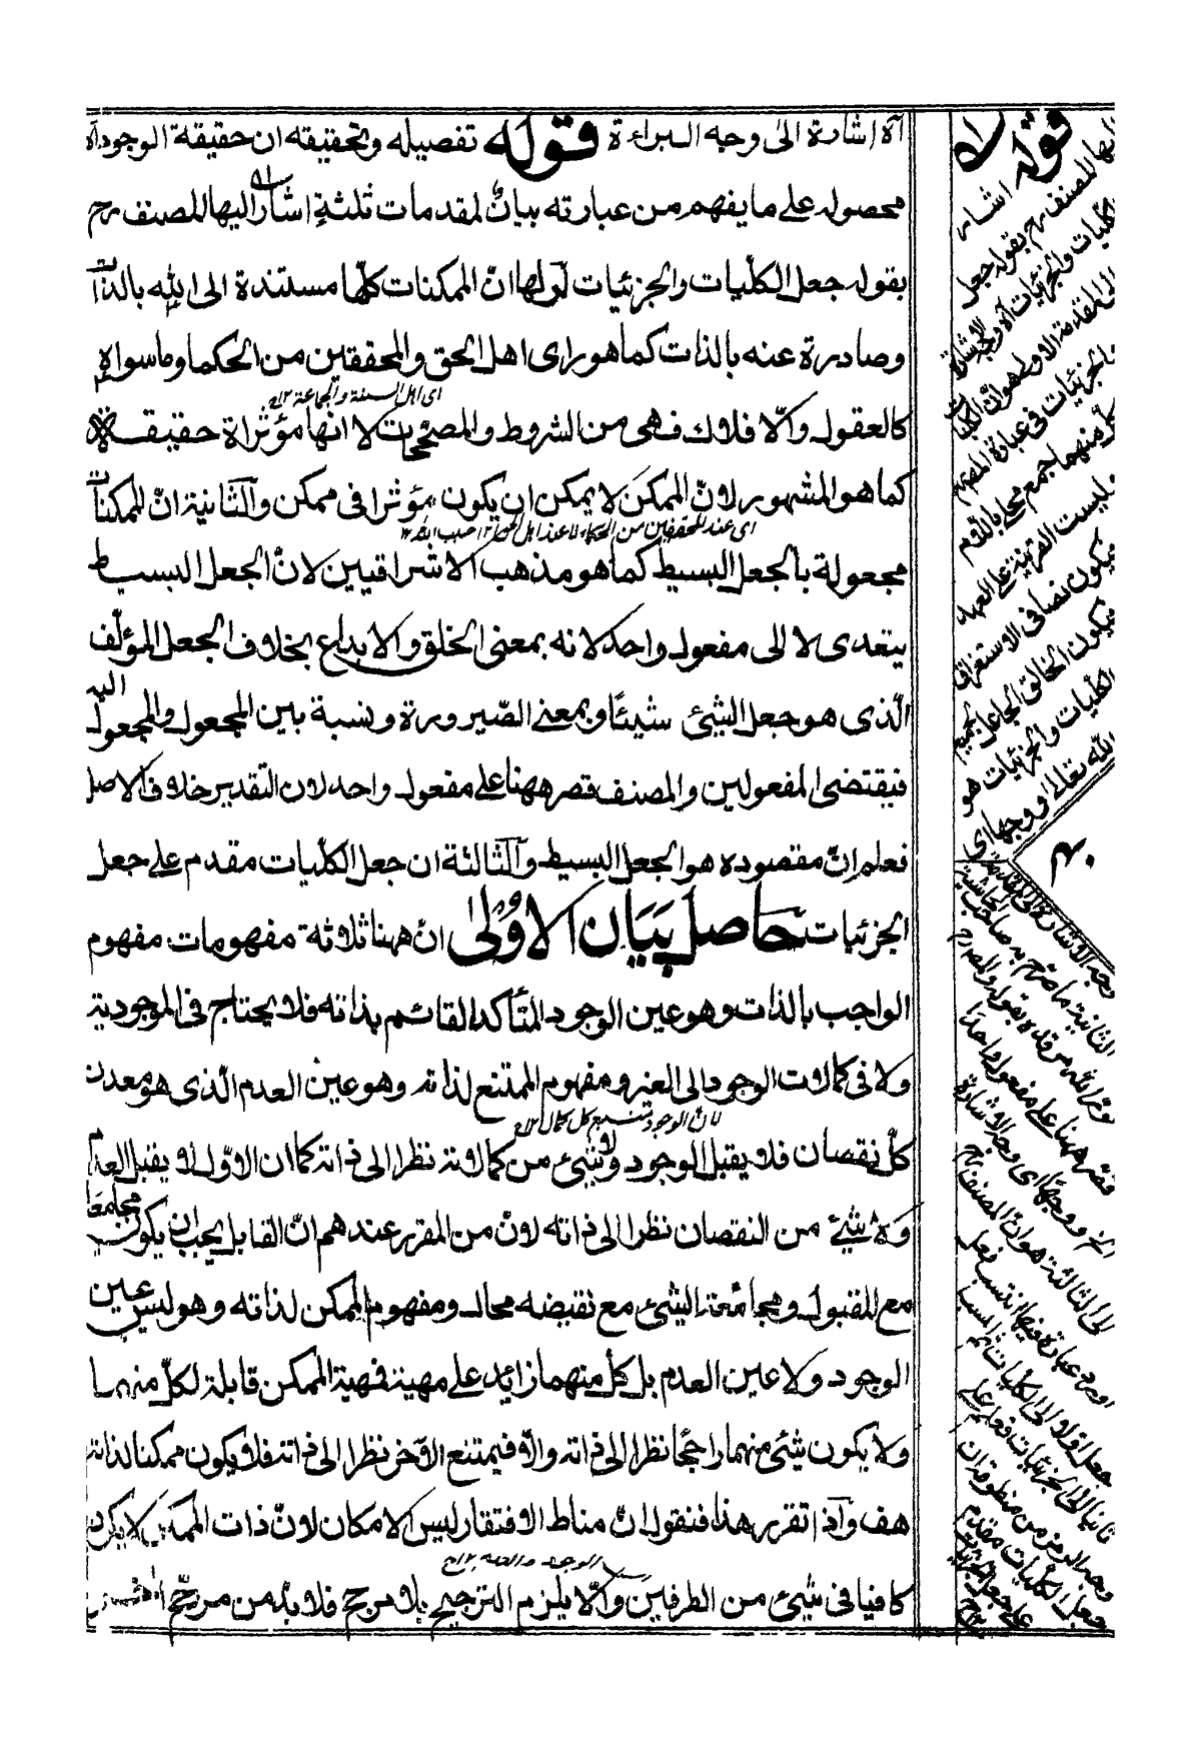 آه اشارة الى وجه البراءة قوله تفصيله وتحقيقه ان حقيقة الوجود آه
محصوله على ما يفهم من عبارته بيان لمقدمات ثلثة اشار اليها المصنف رح
بقوله جعل الكلّيات والجزئيات اولها انّ الممكنات كلّها مستندة الى الله بالذات
وصادرة عنه بالذات كما هو راى اهل الحق والمحققين من الحكما وما سواه
اى اهل السنة والجماعة ١٢
كالعقول والّا فلاك فهى من الشروط والمصححات لا انها مؤثراة حقيقة
كما هو المشهور لانّ الممكن لا يمكن ان يكون مؤثرا فى ممكن والثانية انّ الممكنات
اى عند المحققين من الحكماء لا عند اهل
مجعولة بالجعل البسيط كما هو مذهب الاشراقيين لانّ الجعل البسيط
يتعدى لا الى مفعول واحد لانه بمعنى الخلق والابداع بخلاف الجعل المؤلّف
الّذى هو جعل الشئ شيئًا وبمعنى الصّيرورة ونسبة بين المجعول والمجعول اليه
فيقتضى المفعولين والمصنف قصر ههنا على مفعول واحد لان التقدير خلاف الاصل
فعلم انّ مقصوده هو الجعل البسيط والثالثة ان جعل الكلّيات مقدم على جعل
الجزئيات حاصل بَيَان الاُوْلىٰ انّ ههنا ثلاثة مفهومات مفهوم
الواجب بالذات وهو عين الوجود المتأكد القائم بذاته فلا يحتاج فى الموجودية
ولا فى كمالات الوجود الى الغير ومفهوم الممتنع لذاته وهو عين العدم الّذى هو معدن
لانّ الوجود منبع كل كمال ١٢
كلّ نقصان فلا يقبل الوجود ولا شئ من كمالاته نظرا الى ذاته كما ان الاوّل لا يقبل العدم
ولا شئ من النقصان نظرا الى ذاته لانّ من المقرر عندهم انّ القابل يجب ان يكون مجامعا
مع المقبول ومجامعة الشئ مع نقيضه محال ومفهوم الممكن لذاته وهو ليس عين
الوجود ولا عين العدم بل كلّ منهما زائد على مهيته فهية الممكن قابلة لكلّ منهما
ولا يكون شئ منهما راجحًا نظرا الى ذاته والّا فيمتنع الآخر نظرا الى ذاته فلا يكون ممكنا لذاته
هف واذا تقرر هذا فنقول انّ مناط الافتقار ليس الامكان لانّ ذات الممكن لا يكون
كافيا فى شئ من الطرفين والّا يلزم الترجيح بلا مرجح فلا بدّ من مرجّح
قوله
اشار
اليها المصنف رح بقوله جعل
الكليات والجزئيات آه وجه الاشارة
الى المقدمة الاولى هو انّ الكليات
والجزئيات فى عبارة المصنف
كل منهما جمع محلى باللام
وليست القرينة على العهد
فيكون نصا فى الاستغراق
فيكون الخالق الجاعل لجميع
الكليات والجزئيات هو
الله تعالى ووجهها
وجه الاشارة الى المقدمة
الثانية ما صرح به صاحب الحاشية
نور الله مرقده بقوله والمصنف
قصر ههنا على مفعول واحد
الخ ووجها اى وجه الاشارة
الى الثالثة هو انّ المصنف رح
اورد عبارة
جعل اولا الى الكليات ثم
ثانيا الى الجزئيات فعلم
وجه الرمز من منطوقه ان
جعل الكليات مقدم
على جعل الجزئيات